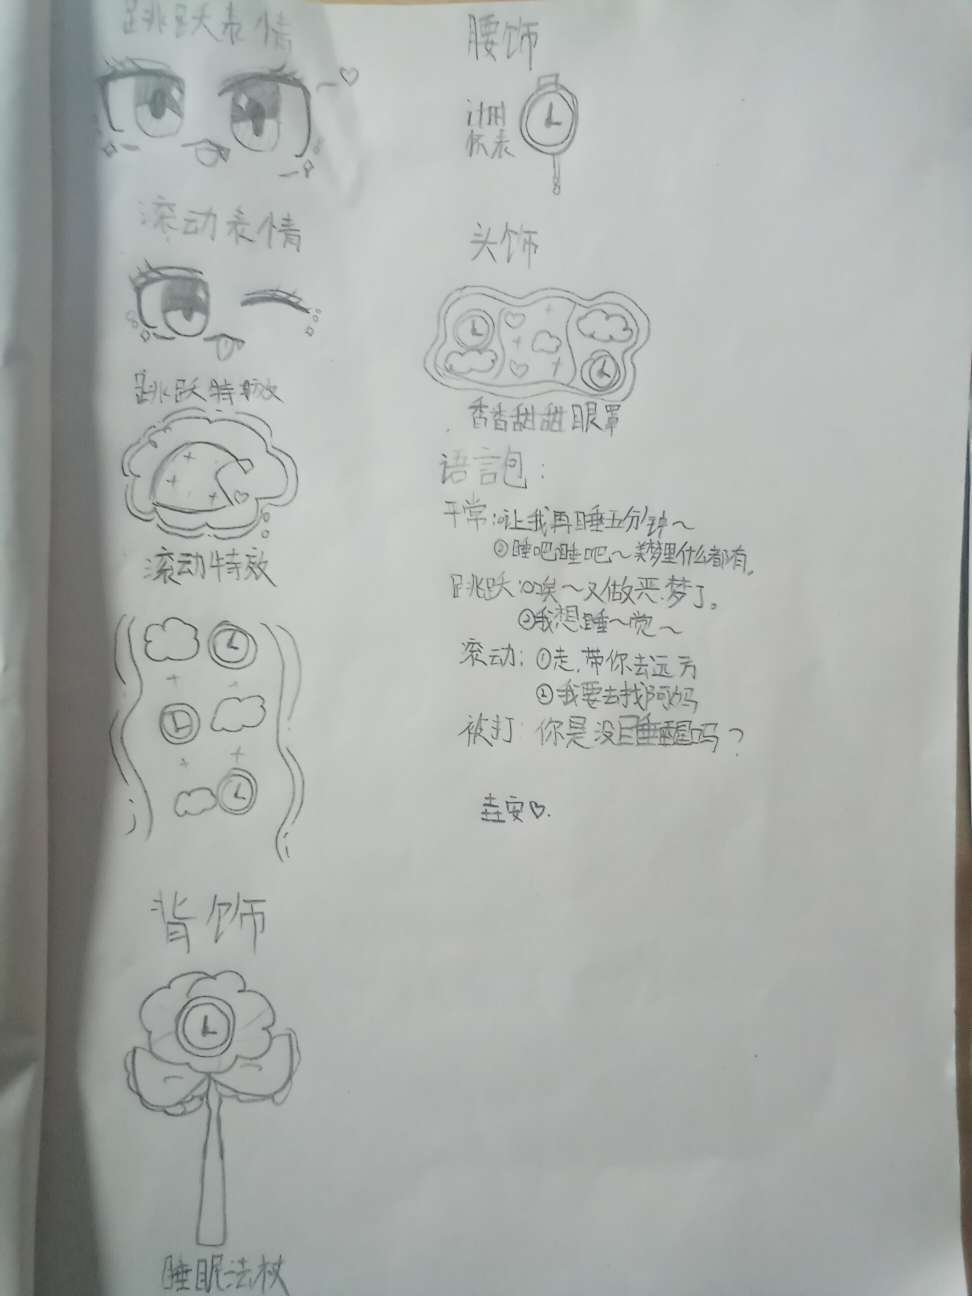 跳跃表情
滚动表情
跳跃特效
滚动特效
背饰
睡眠法杖
腰饰
计时
怀表
头饰
香香甜甜眼罩
语言包：
平常：①让我再睡五分钟～
②睡吧睡吧～美梦里什么都有。
跳跃：①唉～又做恶梦了。
②我想睡～觉～
滚动：①走，带你去远方
②我要去找阿妈
被打：你是没睡醒吗？
垚安♡.